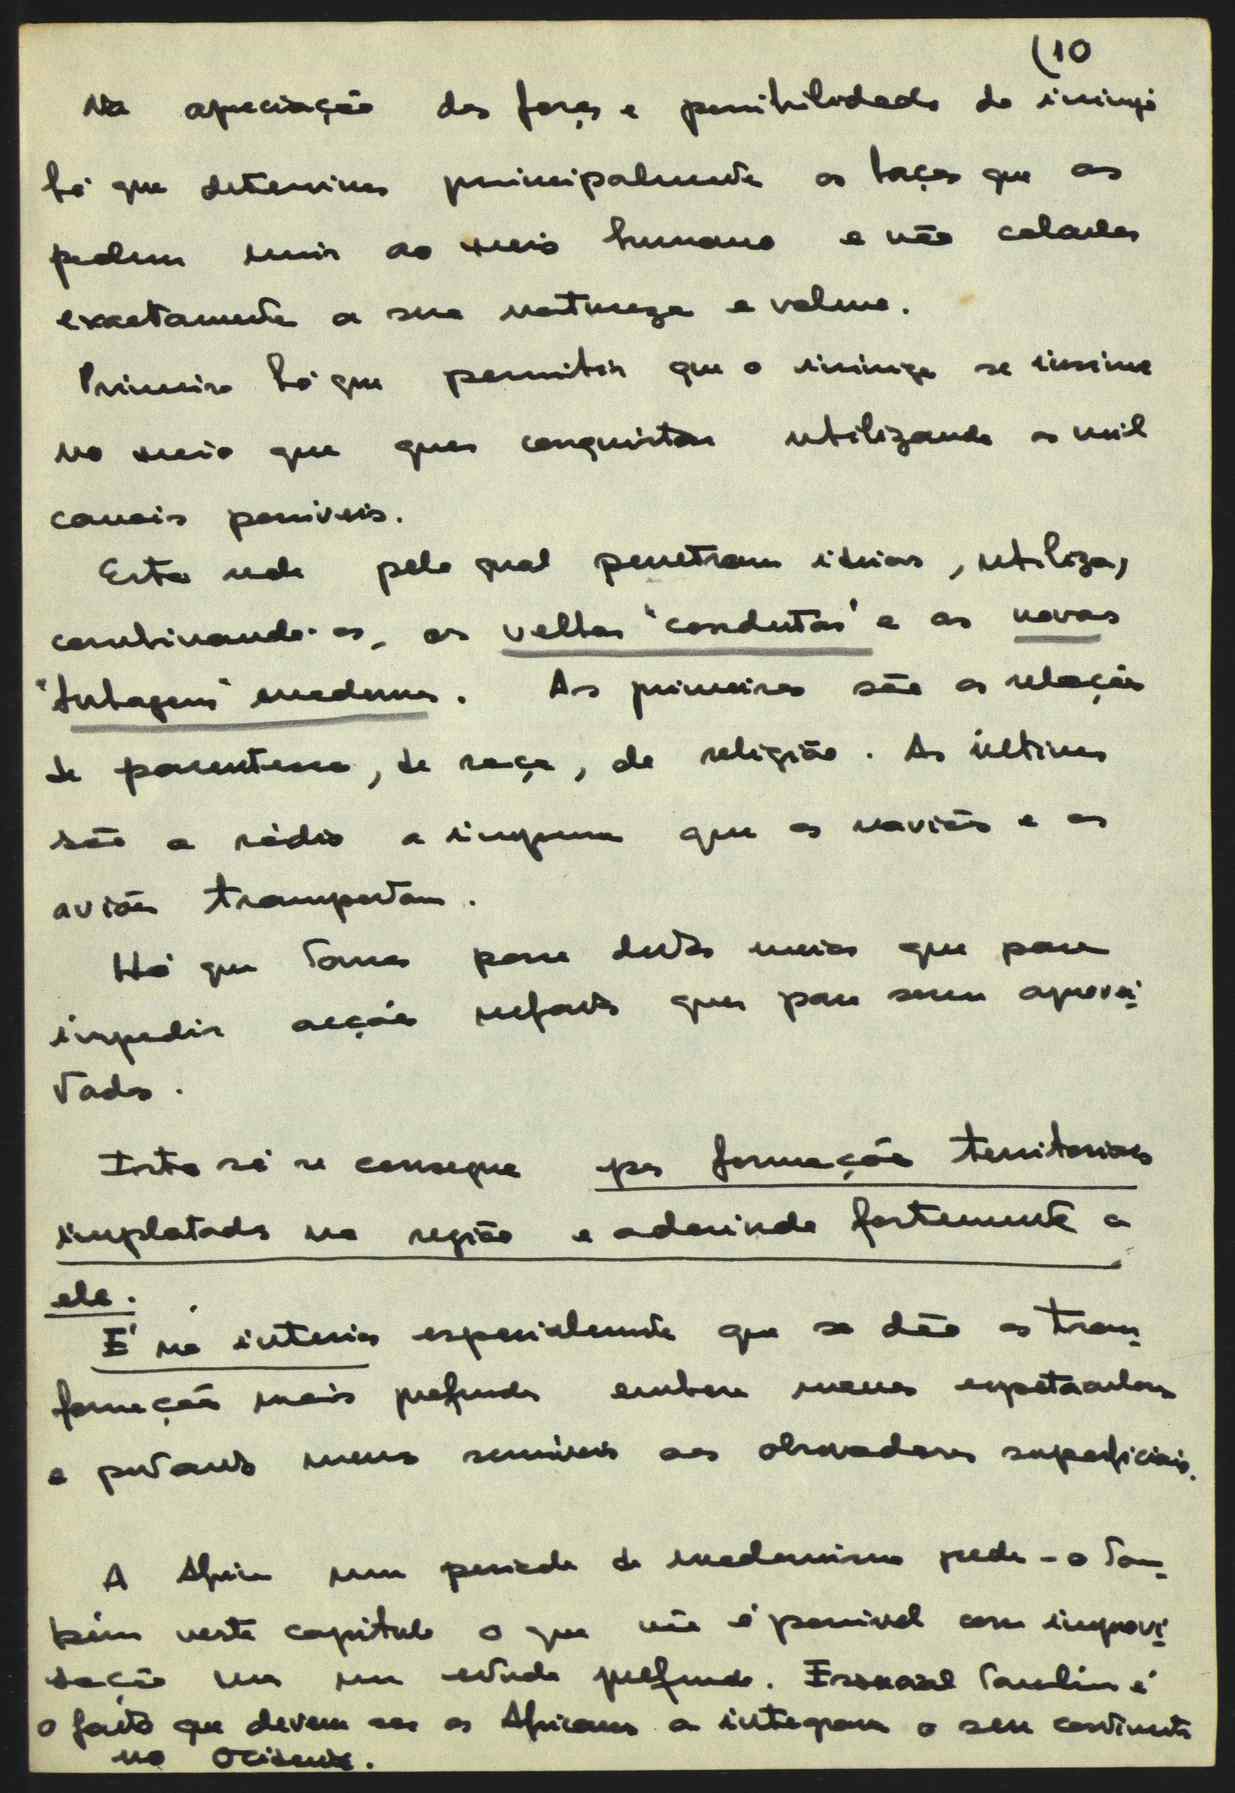 (10
Na apreciação das forças e possibilidades do inimigo
há que determinar principalmente os laços que as
podem unir ao meio humano e não calcular
exactamente a sua natureza e volume.
Primeiro há que permitir que o inimigo se insinue
no meio que quer conquistar utilizando os mil
canais possíveis.
Esta rede pela qual penetram ideias, utiliza,
combinando-os, as velhas "condutas" e as novas
"tubagens" modernas. As primeiras são as relações
de parentesco, de raça, de religião. As últimas
são a rádio a imprensa que os naviões e os
aviões transportam.
Há que tomar posse destes meios quer para
impedir acções nefastas quer para serem aprovei-
tados.
Isto só se consegue por formações territoriais
implatadas na região e aderindo fortemente a
ela.
É no interior especialmente que se dão as trans-
formações mais profundas embora menos espetaculares
e portanto menos sensíveis aos observadores superficiais.
A Africa num periodo de modernismo pede-o tam-
bém neste capitulo o que não é possivel com improvi-
sação mas um estudo profundo. Essencial também é
o facto que devem ser os Africanos a integrar o seu continente
no Ocidente.